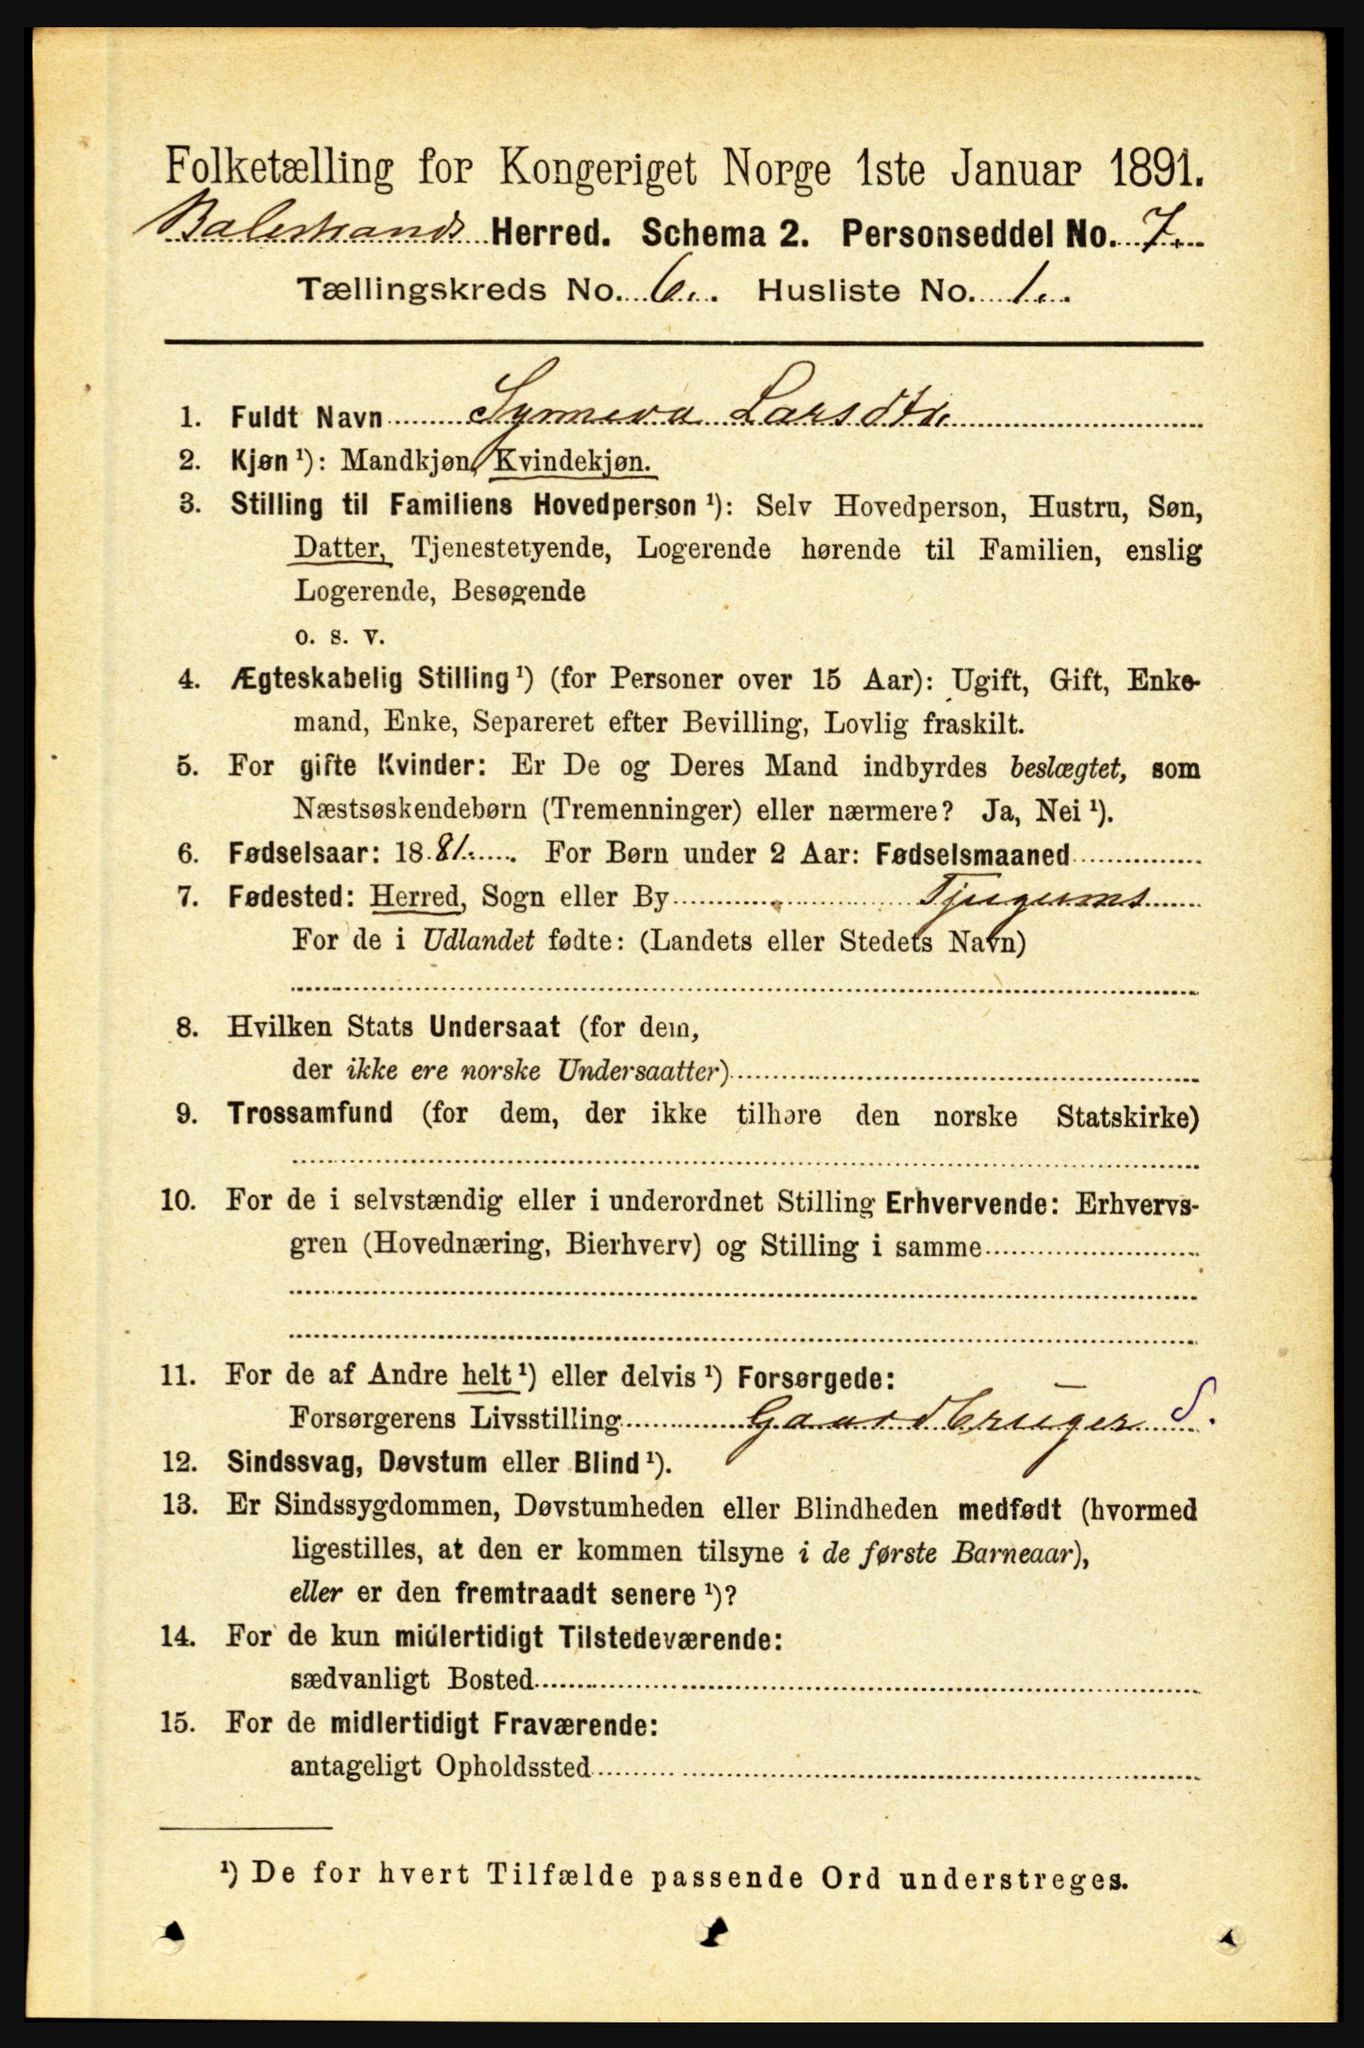 Folketælling for Kongeriget Norge 1ste Januar 1891.
Balestrands Herred. Schema 2. Personseddel No. 7.
Tællingskreds No. 6. Husliste No. 1.
1. Fuldt Navn Synneva Larsdtr
2. Kjøn ¹): Mandkjøn, Kvindekjøn.
3. Stilling til Familiens Hovedperson ¹): Selv Hovedperson, Hustru, Søn,
Datter, Tjenestetyende, Logerende hørende til Familien, enslig
Logerende, Besøgende
o. s. v.
4. Ægteskabelig Stilling ¹) (for Personer over 15 Aar): Ugift, Gift, Enke-
mand, Enke, Separeret efter Bevilling, Lovlig fraskilt.
5. For gifte Kvinder: Er De og Deres Mand indbyrdes beslægtet, som
Næstsøskendebørn (Tremenninger) eller nærmere? Ja, Nei ¹).
6. Fødselsaar: 1881. For Børn under 2 Aar: Fødselsmaaned
7. Fødested: Herred, Sogn eller By Tjugums
For de i Udlandet fødte: (Landets eller Stedets Navn)
8. Hvilken Stats Undersaat (for dem,
der ikke ere norske Undersaatter)
9. Trossamfund (for dem, der ikke tilhøre den norske Statskirke)
10. For de i selvstændig eller i underordnet Stilling Erhvervende: Erhvervs-
gren (Hovednæring, Bierhverv) og Stilling i samme
11. For de af Andre helt ¹) eller delvis ¹) Forsørgede:
Forsørgerens Livsstilling Gaardbruger S.
12. Sindssvag, Døvstum eller Blind ¹).
13. Er Sindssygdommen, Døvstumheden eller Blindheden medfødt (hvormed
ligestilles, at den er kommen tilsyne i de første Barneaar),
eller er den fremtraadt senere ¹)?
14. For de kun midlertidigt Tilstedeværende:
sædvanligt Bosted
15. For de midlertidigt Fraværende:
antageligt Opholdssted
¹) De for hvert Tilfælde passende Ord understreges.